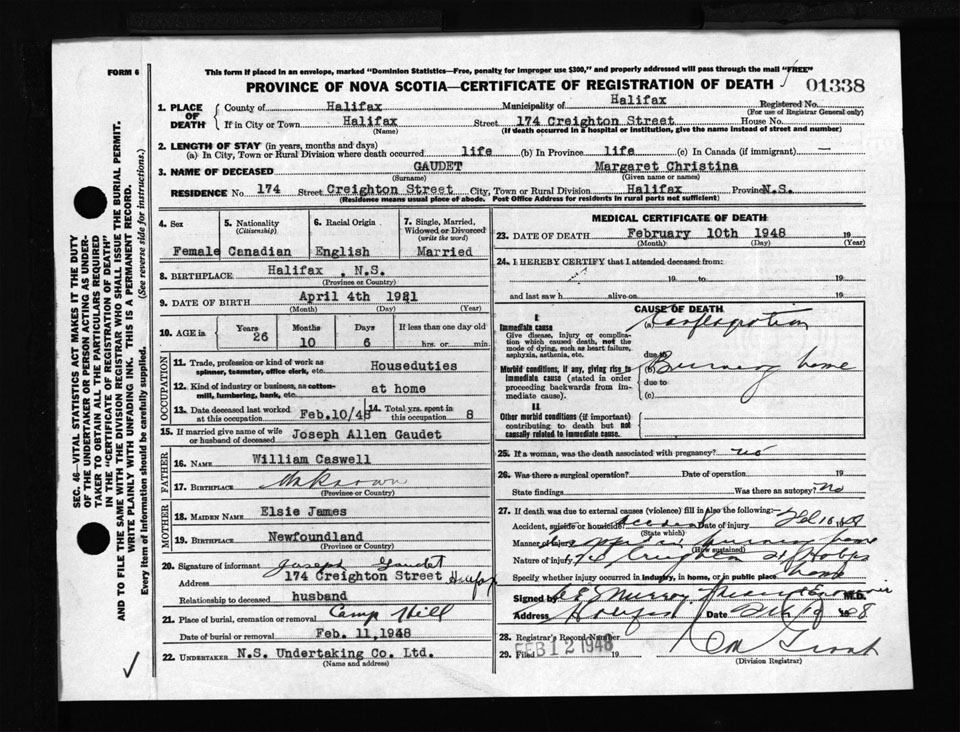 FORM 6
This form if placed in an envelope, marked "Dominion Statistics—Free, penalty for improper use $300," and properly addressed will pass through the mail "FREE"
PROVINCE OF NOVA SCOTIA—CERTIFICATE OF REGISTRATION OF DEATH 01338
1. PLACE OF DEATH
County of Halifax Municipality of Halifax Registered No.
(For use of Registrar General only)
If in City or Town Halifax Street 174 Creighton Street House No.
(Name) (If death occurred in a hospital or institution, give the name instead of street and number)
2. LENGTH OF STAY (in years, months and days)
(a) In City, Town or Rural Division where death occurred life (b) In Province life (c) In Canada (if immigrant) —
3. NAME OF DECEASED GAUDET Margaret Christina
(Surname) (Given name or names)
RESIDENCE No 174 Street Creighton Street City, Town or Rural Division Halifax Province N.S.
(Residence means usual place of abode. Post Office Address for residents in rural parts not sufficient)
SEC. 46—VITAL STATISTICS ACT MAKES IT THE DUTY
OF THE UNDERTAKER OR PERSON ACTING AS UNDER-
TAKER TO OBTAIN ALL THE PARTICULARS REQUIRED
IN THE "CERTIFICATE OF REGISTRATION OF DEATH"
AND TO FILE THE SAME WITH THE DIVISION REGISTRAR WHO SHALL ISSUE THE BURIAL PERMIT.
WRITE PLAINLY WITH UNFADING INK. THIS IS A PERMANENT RECORD.
Every item of Information should be carefully supplied. (See reverse side for instructions.)
4. Sex
Female
5. Nationality
(Citizenship)
Canadian
6. Racial Origin
English
7. Single, Married, Widowed or Divorced
(write the word)
Married
8. BIRTHPLACE Halifax, N.S.
(Province or Country)
9. DATE OF BIRTH April 4th 1921
(Month) (Day) (Year)
10. AGE in Years 26 Months 10 Days 6 If less than one day old
hrs. or min.
OCCUPATION
11. Trade, profession or kind of work as
spinner, teamster, office clerk, etc. Houseduties
12. Kind of industry or business, as cotton-
mill, lumbering, bank, etc. at home
13. Date deceased last worked
at this occupation Feb.10/48
14. Total yrs. spent in
this occupation 8
15. If married give name of wife
or husband of deceased Joseph Allen Gaudet
FATHER
16. NAME William Caswell
17. BIRTHPLACE Unknown
(Province or Country)
MOTHER
18. MAIDEN NAME Elsie James
19. BIRTHPLACE Newfoundland
(Province or Country)
20. Signature of informant Joseph Gaudet
Address 174 Creighton Street Halifax
Relationship to deceased husband
21. Place of burial, cremation or removal Camp Hill
Date of burial or removal Feb. 11,1948
22. UNDERTAKER N.S. Undertaking Co. Ltd.
(Name and address)
MEDICAL CERTIFICATE OF DEATH
23. DATE OF DEATH February 10th 1948 19
(Month) (Day) (Year)
24. I HEREBY CERTIFY that I attended deceased from:
19 to 19
and last saw h alive on 19
CAUSE OF DEATH
I.
Immediate cause (a) Conflagration
Give disease, injury or complica-
tion which caused death, not the
mode of dying, such as heart failure,
asphyxia, asthenia, etc. due to
Morbid conditions, if any, giving rise to (b) Burning home
immediate cause (stated in order due to
proceeding backwards from im-
mediate cause). (c)
II.
Other morbid conditions (if important)
contributing to death but not
causally related to immediate cause.
25. If a woman, was the death associated with pregnancy? no
26. Was there a surgical operation? Date of operation 19
State findings Was there an autopsy? No
27. If death was due to external causes (violence) fill in also the following:
Accident, suicide or homicide? Accident Date of injury Feb 10 1948
(State which)
Manner of injury trapped in burning home
(How sustained)
Nature of injury 174 Creighton St
Specify whether injury occurred in industry, in home, or in public place home
Signed by Murray M.D.
Address Halifax Date Feb 19 48
28. Registrar's Record Number
29. Filed FEB 12 1948 19
(Division Registrar)